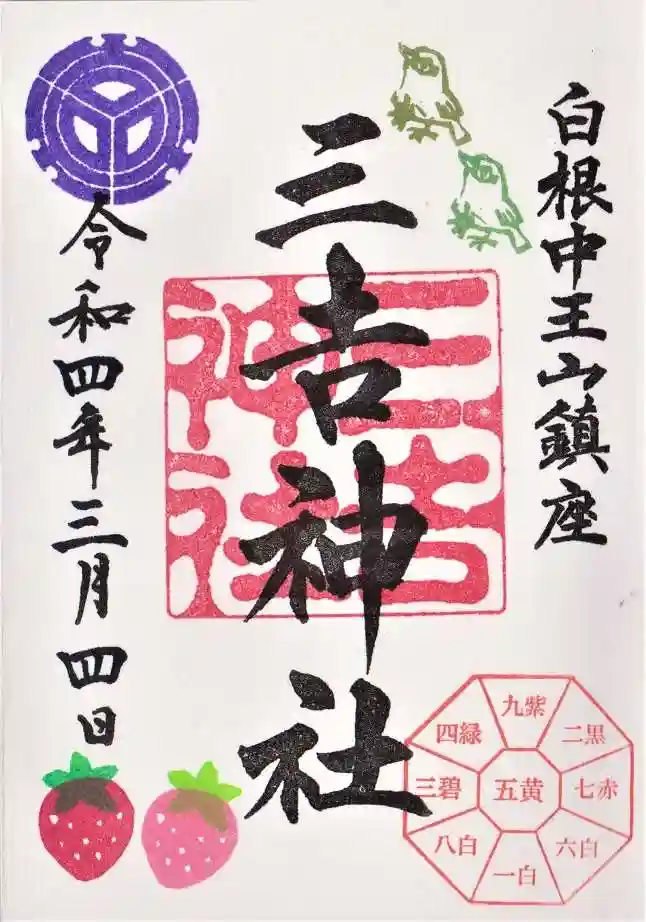 白根中王山鎮座
三吉神社
三吉
神社
令和四年三月四日
九紫
四緑
二黒
三碧
五黄
七赤
八白
六白
一白